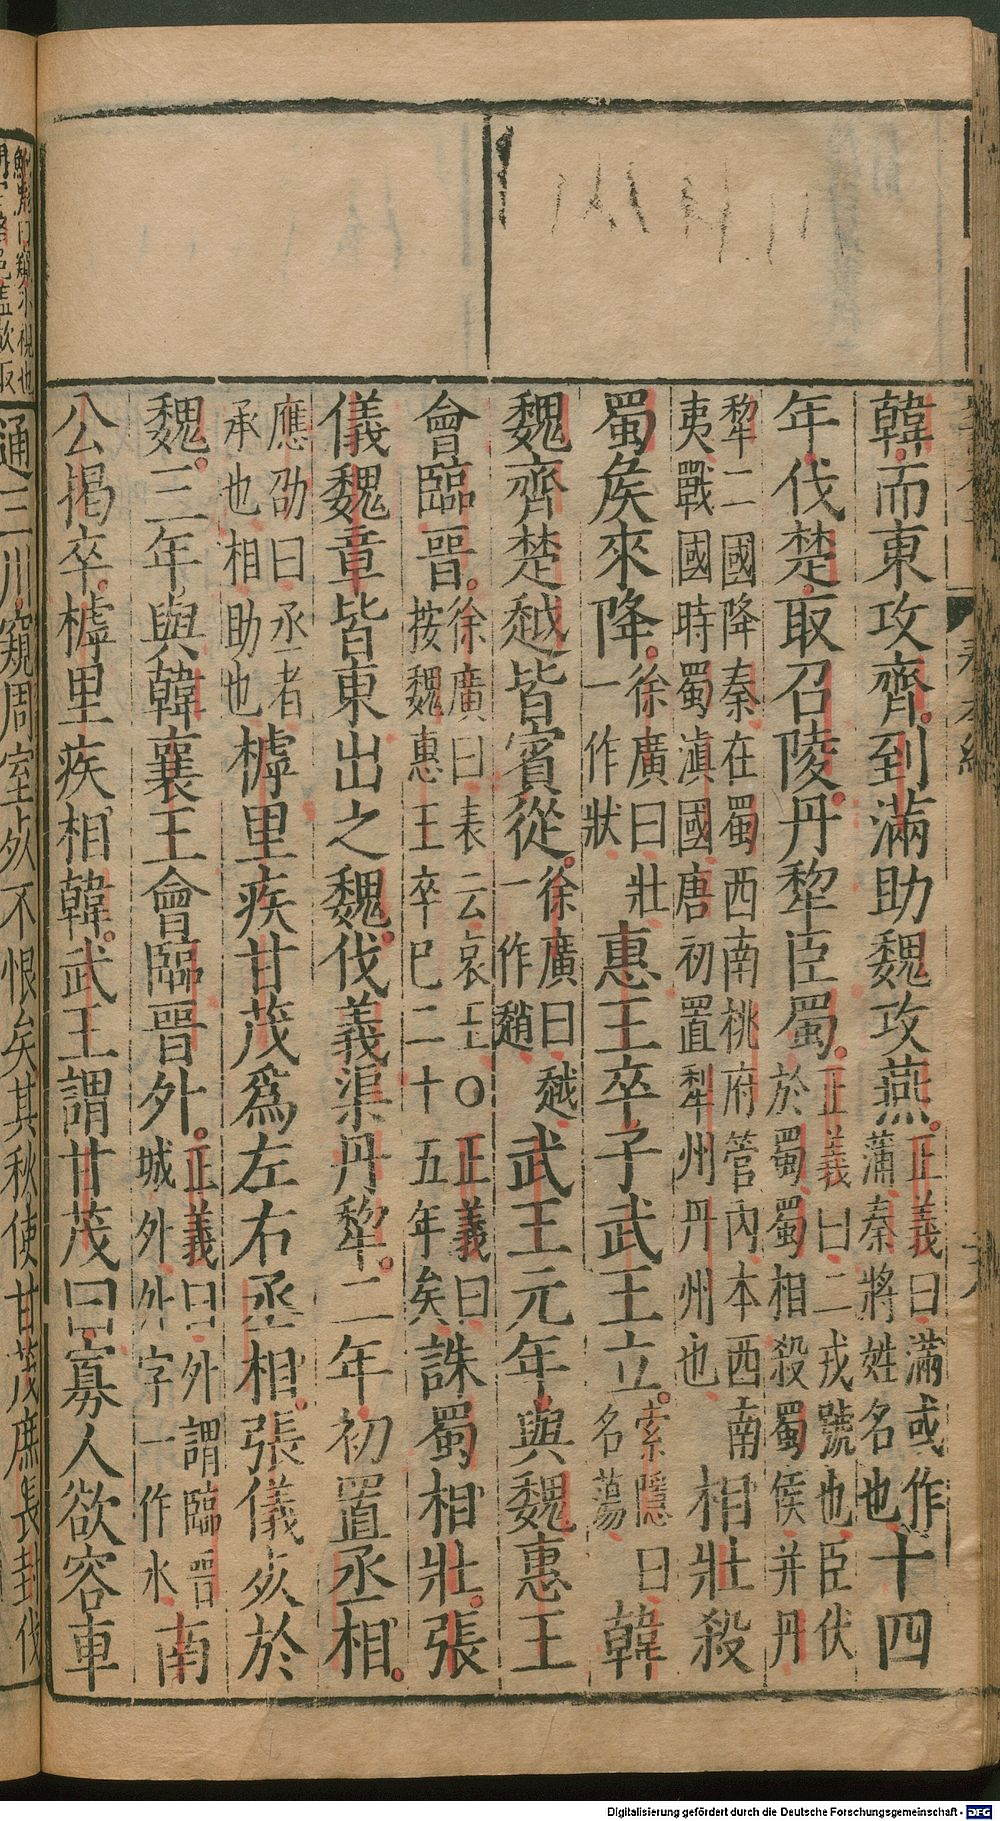 韓而東攻齊到滿助魏攻燕正義曰滿或作蒲秦將姓名也十四
年伐楚取召陵丹犂臣蜀正義曰二戎號也臣伏於蜀蜀相殺蜀侯并丹
犂二國降秦在蜀西南桃府管內本西南夷戰國時蜀滇國唐初置犁州丹州也相壯殺
蜀矦來降徐廣曰壯一作狀惠王卒子武王立索隱曰名蕩韓
魏齊楚越皆賓從徐廣曰越一作趙武王元年與魏惠王
會臨晉徐廣曰表云哀王○正義曰按魏惠王卒巳二十五年矣誅蜀相壯張
儀魏章皆東出之魏伐義渠丹犂二年初置丞相
應劭曰丞者承也相助也樗里疾甘茂爲左右丞相張儀死於
魏三年與韓襄王會臨晉外正義曰外謂臨晉城外外字一作水南
公揭卒樗里疾相韓武王謂甘茂曰寡人欲容車
通三川窺周室死不恨矣其秋使甘茂庶長封伐
Digitalisierung gefördert durch die Deutsche Forschungsgemeinschaft - DFG